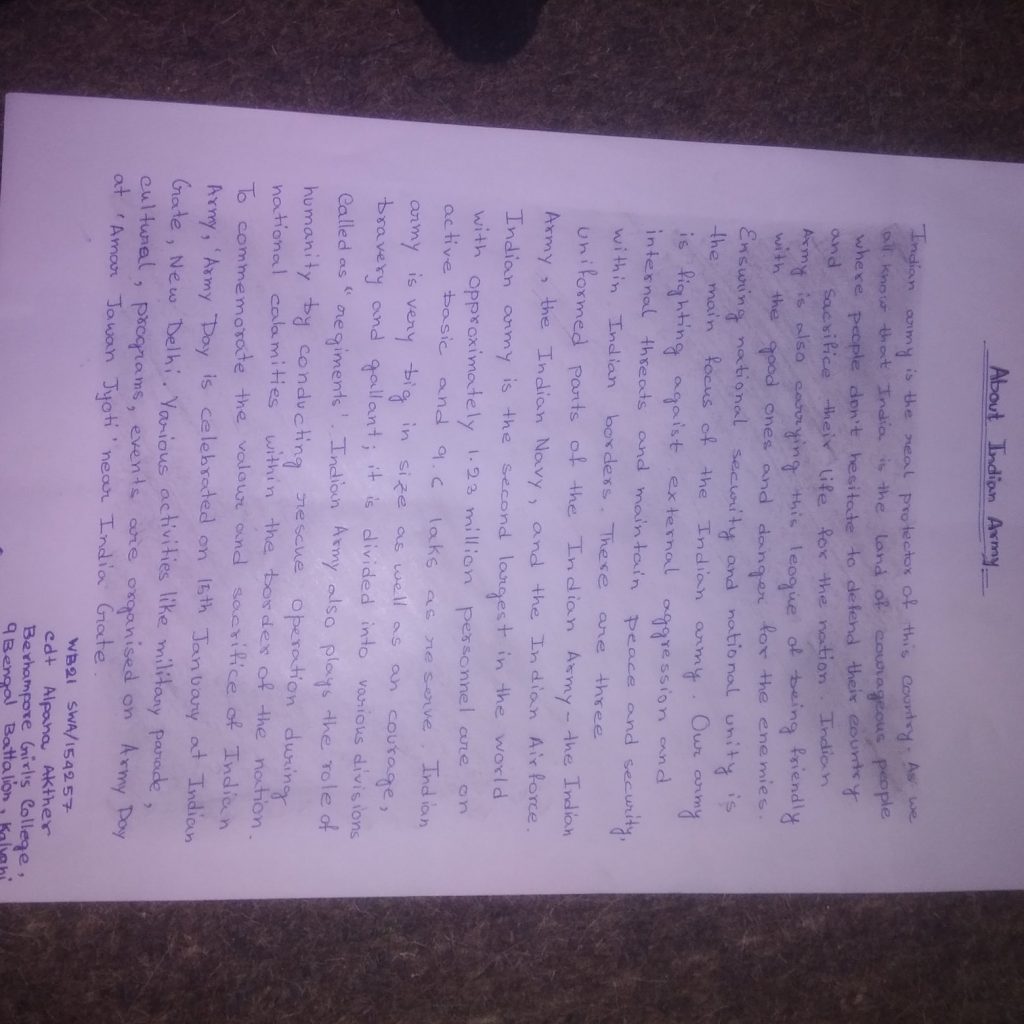 About Indian Army
Indian army is the real protector of this country. As we
all know that India is the land of courageous people
where people don't hesitate to defend their country
and sacrifice their life for the nation. Indian
Army is also carrying this league of being friendly
with the good ones and danger for the enemies.
Ensuring national security and national unity is
the main focus of the Indian army. Our army
is fighting agaist external aggression and
internal threats and maintain peace and security,
within Indian borders. There are three
uniformed parts of the Indian Army - the Indian
Army, the Indian Navy, and the Indian Airforce.
Indian army is the second largest in the world
with approximately 1.23 million personnel are on
active basic and 9.6 laks as reserve. Indian
army is very big in size as well as an courage,
bravery and gallant; it is divided into various divisions
Called as "regiments'. Indian Army also plays the role of
humanity by conducting rescue operation during
national calamities within the border of the nation.
To commemorate the valour and sacrifice of Indian
Army, 'Army Day is celebrated on 15th January at Indian
Gate, New Delhi. Various activities like military parade,
cultural, programs, events are organised on Army Day
at 'Amar Jawan Jyoti' near India Gate.
WB21 SWA/154257
cdt Alpana Akther
Berhampore Girls College,
9 Bengal Battalion, Kalyani